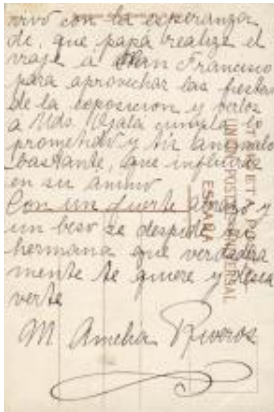 vivo con la esperanza
de, que papá realize el
viaje a San Francisco
para aprovechar las fiestas
de la esposicion y verlos
a Uds. Ojala cumpla lo
prometido y
bastante, que influirás
en su animo
Con un fuerte abrazo y
un beso se despide
hermana que verdadera
mente te quiere y desea
verte
M Amelia Riveros
TARJETA POSTAL
UNION POSTAL UNIVERSAL
ESPAÑA